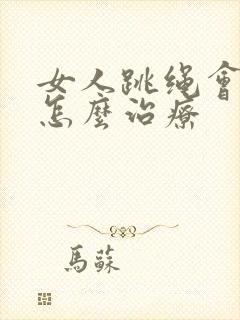 女人跳绳會
怎麼治療
馬蘇